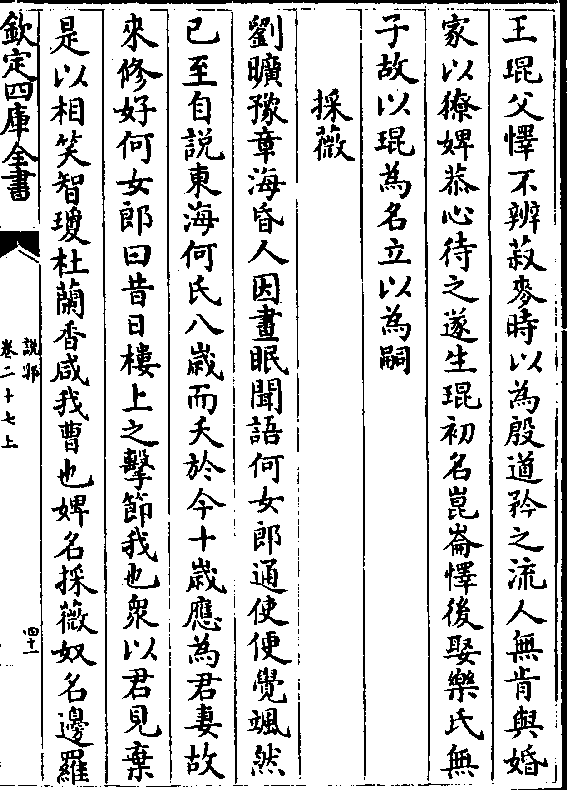 王琨父懌不辨菽麥時以為殷道矜之流人無肯與婚
家以獠婢恭心待之遂生琨初名崑崙懌後娶樂氏無
子故以琨為名立以為嗣
採薇
劉曠豫章海昏人因晝眠聞語何女郎通使便覺颯然
已至自說東海何氏八歲而夭於今十歲應為君妻故
來修好何女郎曰昔日樓上之擊節我也衆以君見棄
是以相笑智瓊杜蘭香咸我曹也婢名採薇奴名邊羅
欽定四庫全書
說郛
卷二十七上
四十一